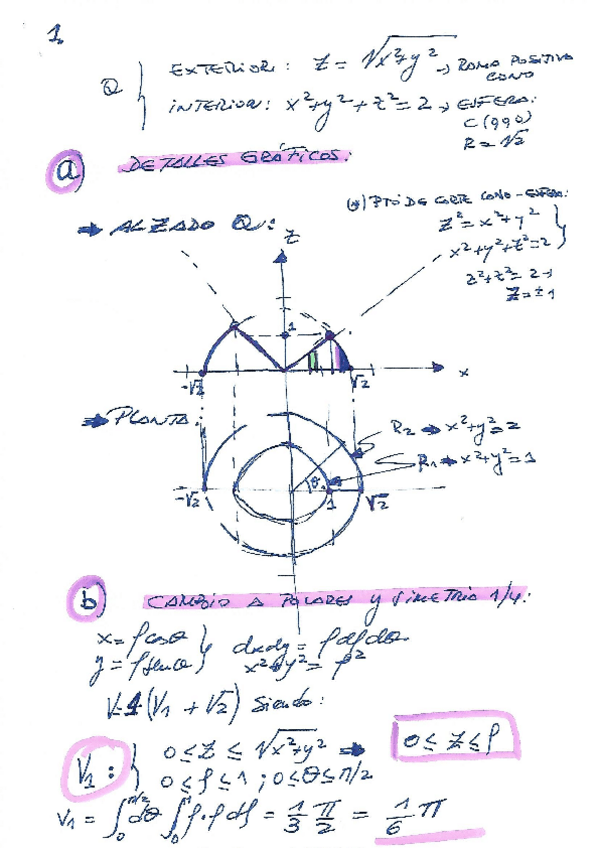 1.
Q { EXTERIOR: z = √x²+y² → RAMA POSITIVA CONO
INTERIOR: x²+y²+z²=2 → ESFERA:
C(0,0,0)
R=√2
a) DETALLES GRÁFICOS:
(*) PTO DE CORTE CONO-ESFERA:
z²=x²+y²
x²+y²+z²=2 }
z²+z²=2→
z=±1
⇒ ALZADO Q:
z
1
-√2
√2
x
⇒ PLANTA:
R₂ ⇒ x²+y²=2
R₁ ⇒ x²+y²=1
-√2
θ
1
√2
b) CAMBIO A POLARES y SIMETRIA 1/4:
x=ρcosθ } dxdy=ρdρdθ
y=ρsenθ } x²+y²=ρ²
V=4(V₁+V₂) siendo:
V₁: { 0≤z≤√x²+y² ⇒ 0≤z≤ρ
0≤ρ≤1; 0≤θ≤π/2
V₁ = ∫₀^π/2 dθ ∫₀¹ ρ·ρdρ = 1/3 π/2 = 1/6 π